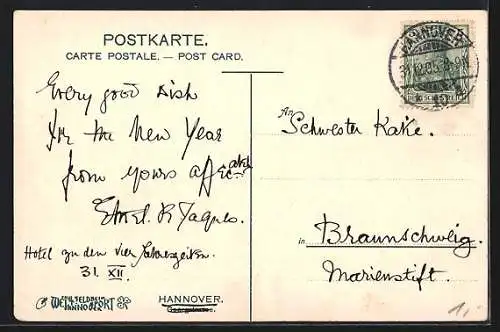 POSTKARTE.
CARTE POSTALE. — POST CARD.
HANNOVER
31.12.05. 8-9N
Every good wish
for the New Year
from yours
An Schwester Käke.
Hotel zu den vier Jahreszeiten.
31. XII.
in Braunschweig.
Marienstift.
HANNOVER.
1,-